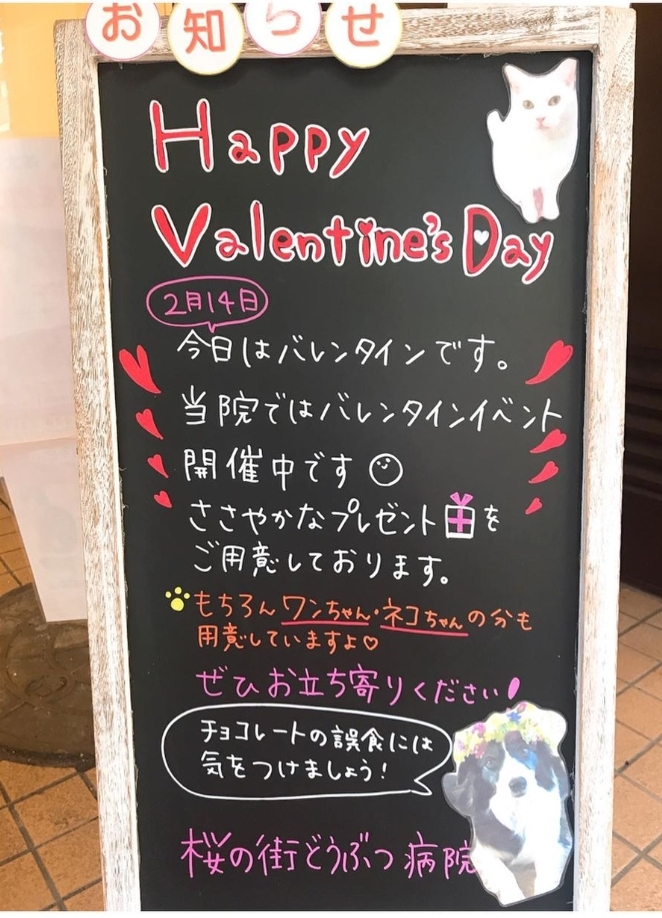 お知らせ
Happy
Valentine's Day
2月14日
今日はバレンタインです。
当院ではバレンタインイベント
開催中です
ささやかなプレゼントを
ご用意しております。
もちろんワンちゃん・ネコちゃんの分も
用意していますよ♡
ぜひお立ち寄りください!
チョコレートの誤食には
気をつけましょう!
桜の街どうぶつ病院